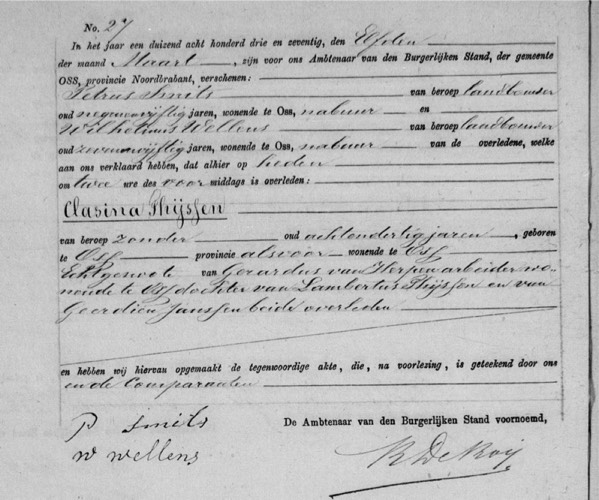 No. 27
In het jaar een duizend acht honderd drie en zeventig, den Elfden
der maand Maart, zijn voor ons Ambtenaar van den Burgerlijken Stand, der gemeente
OSS, provincie Noordbrabant, verschenen:
Petrus Smits van beroep landbouwer
oud negenenvijftig jaren, wonende te Oss, nabuur en
Wilhelmus Wellens van beroep landbouwer
oud zevenenvijftig jaren, wonende te Oss, nabuur van de overledene, welke
aan ons verklaard hebben, dat alhier op heden
om twee ure des voor middags is overleden:
Clasina Thijssen
van beroep zonder oud achtendertig jaren, geboren
te Oss provincie alsvoor wonende te Oss
Echtgenoote van Gerardus van Herpen arbeider wo-
nende te Oss dochter van Lambertus Thijssen en van
Geerdien Janssen beide overleden
en hebben wij hiervan opgemaakt de tegenwoordige akte, die, na voorlezing, is geteekend door ons
en de Comparanten
De Ambtenaar van den Burgerlijken Stand voornoemd,
P Smits
W Wellens
De Roij